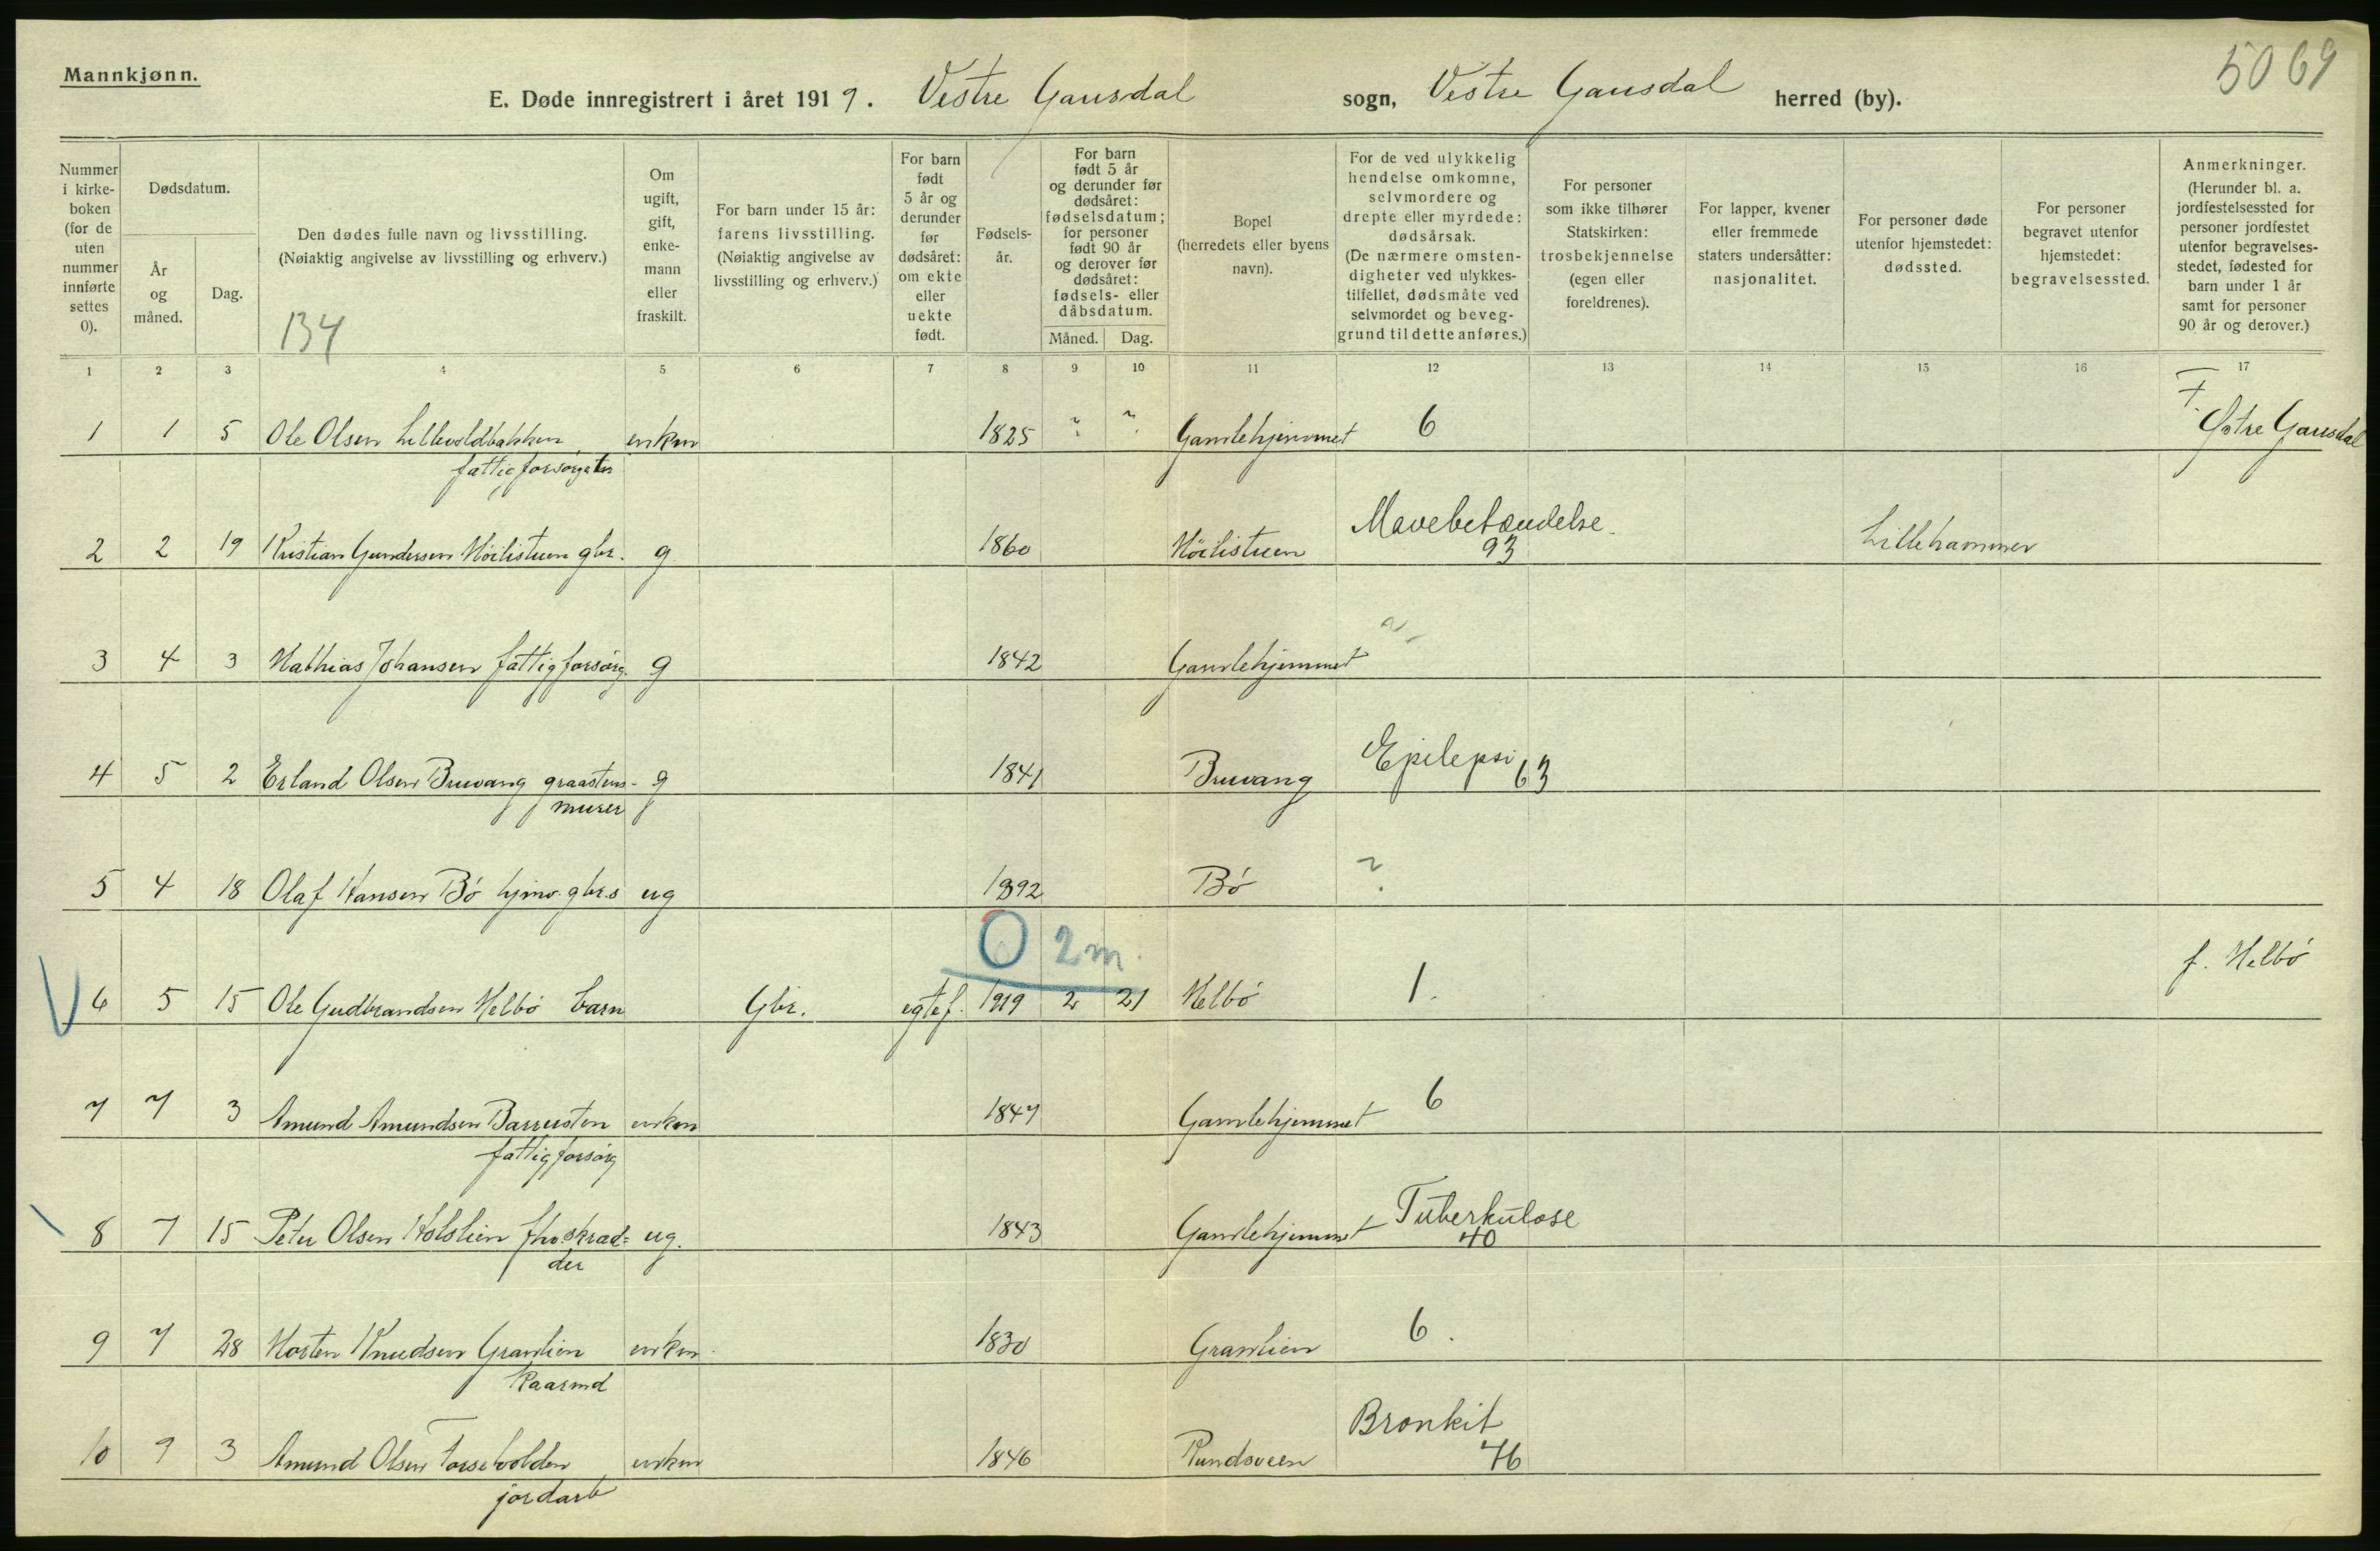 Mannkjønn.
5069
E. Døde innregistrert i året 1919. Vestre Gausdal sogn, Vestre Gausdal herred (by).
Nummer i kirke-boken (for de uten nummer innførte settes 0).
Dødsdatum.
År og måned.
Dag.
Den dødes fulle navn og livsstilling.
(Nøiaktig angivelse av livsstilling og erhverv.)
134
Om ugift, gift, enke-mann eller fraskilt.
For barn under 15 år: farens livsstilling. (Nøiaktig angivelse av livsstilling og erhverv.)
For barn født 5 år og derunder før dødsåret: om ekte eller uekte født.
Fødsels-år.
For barn født 5 år og derunder før dødsåret: fødselsdatum; for personer født 90 år og derover før dødsåret: fødsels- eller dåbsdatum.
Måned. Dag.
Bopel (herredets eller byens navn).
For de ved ulykkelig hendelse omkomne, selvmordere og drepte eller myrdede: dødsårsak. (De nærmere omsten-digheter ved ulykkes-tilfellet, dødsmåte ved selvmordet og beveg-grund til dette anføres.)
For personer som ikke tilhører Statskirken: trosbekjennelse (egen eller foreldrenes).
For lapper, kvener eller fremmede staters undersåtter: nasjonalitet.
For personer døde utenfor hjemstedet: dødssted.
For personer begravet utenfor hjemstedet: begravelsessted.
Anmerkninger. (Herunder bl. a. jordfestelsessted for personer jordfestet utenfor begravelses-stedet, fødested for barn under 1 år samt for personer 90 år og derover.)
1 2 3 4 5 6 7 8 9 10 11 12 13 14 15 16 17
1 1 5 Ole Olsen Lillevoldbakken enkm 1825 ? ? Gamlehjemmet 6 F. Østre Gausdal
fattigforsørget
2 2 19 Kristian Gundersen Höilistuen gbr. g 1860 Höilistuen Mavebetændelse. 93 Lillehammer
3 4 3 Mathias Johansen fattigforsörg. g 1842 Gamlehjemmet ?
4 5 2 Erland Olsen Bruvang graastens- g 1841 Bruvang Epilepsi 63
murer
5 4 18 Olaf Hansen Bö hjmv. gbr.s ug 1892 Bö ?
0 2 m.
6 5 15 Ole Gudbrandsen Helbö barn Gbr. egtef. 1919 2 21 Helbö 1. f. Helbö
7 7 3 Amund Amundsen Barrusten enkm 1847 Gamlehjemmet 6
fattigforsörg
8 7 15 Peter Olsen Holslien fhv. skræd- ug. 1843 Gamlehjemmet Tuberkulose 40
der
9 7 28 Morten Knudsen Gramlien enkm. 1830 Gramlien 6.
Kaarmd
10 9 3 Amund Olsen enkm 1846 Rundsveen Bronkit 76
jordarb